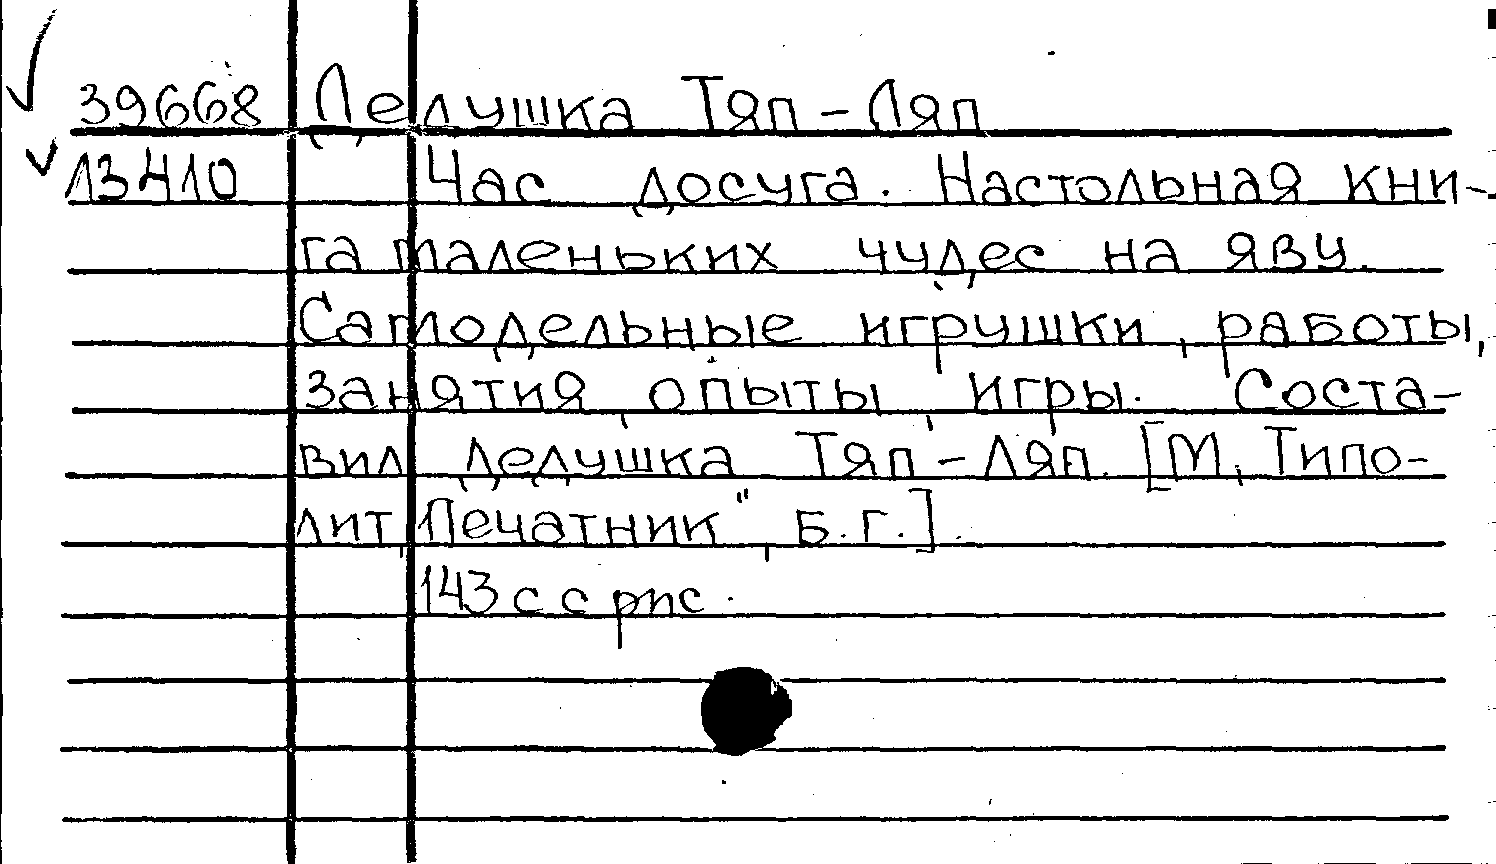 39668 Дедушка Тяп-Ляп
13410 Час досуга. Настольная кни-
га маленьких чудес на яву.
Самодельные игрушки, работы,
занятия, опыты, игры. Соста-
вил Дедушка Тяп-Ляп. [М, Типо-
лит, Печатник", Б.г.].
143 с с рис.